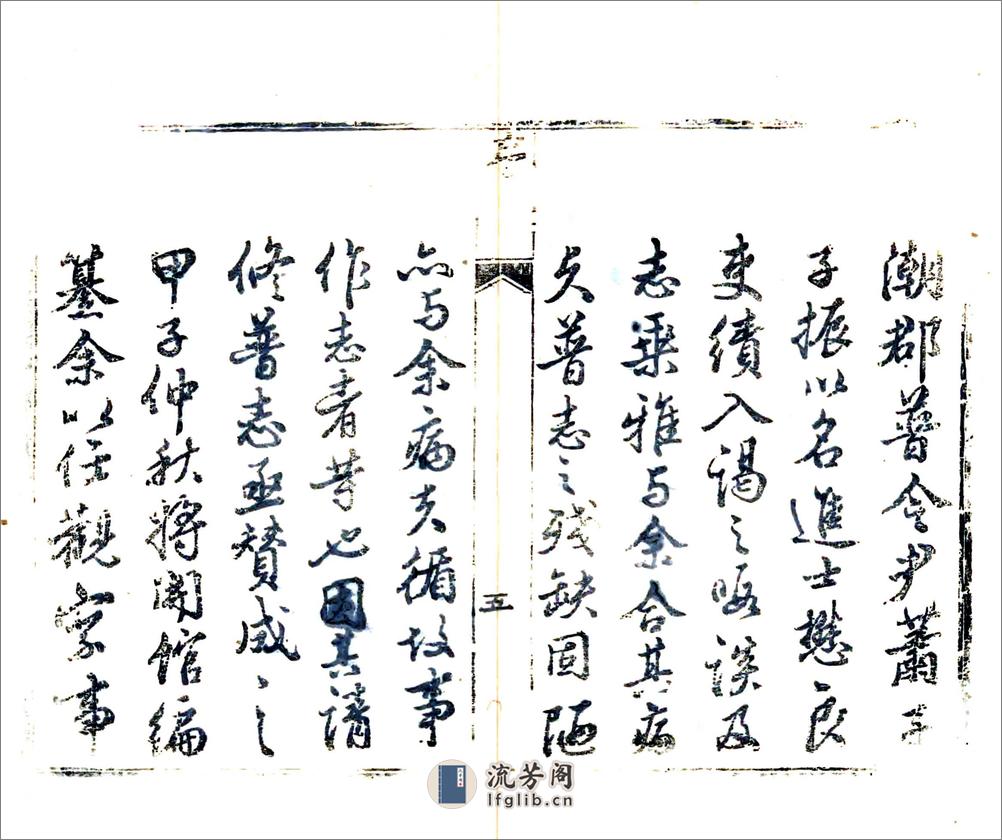 潮郡普令尹蕭
子振以名進士懋良
吏績入謁之暇談及
志乘雅与余合其病
夫普志之残缺固陋
五
亦与余病夫循故事
作志者等也因其請
修普志亟贊成之
甲子仲秋將開館編
纂余以任觀察事
流芳阁
lfglib.cn